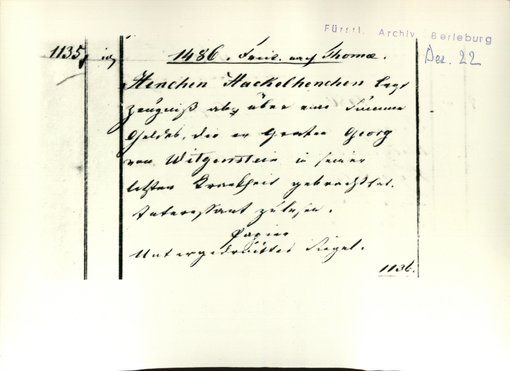 Fürstl. Archiv Berleburg
Dez. 22
1135,
1486. Freit. nach Thomae.
Henchen Hackelhenchen legt
Zeugniß ab, über eine Summe
Geldes, die er Grafen Georg
von Witgenstein in seiner
letzten Krankheit gebracht hat.
Interessant zu lesen.
Papier
Untergedrücktes Siegel.
1136.